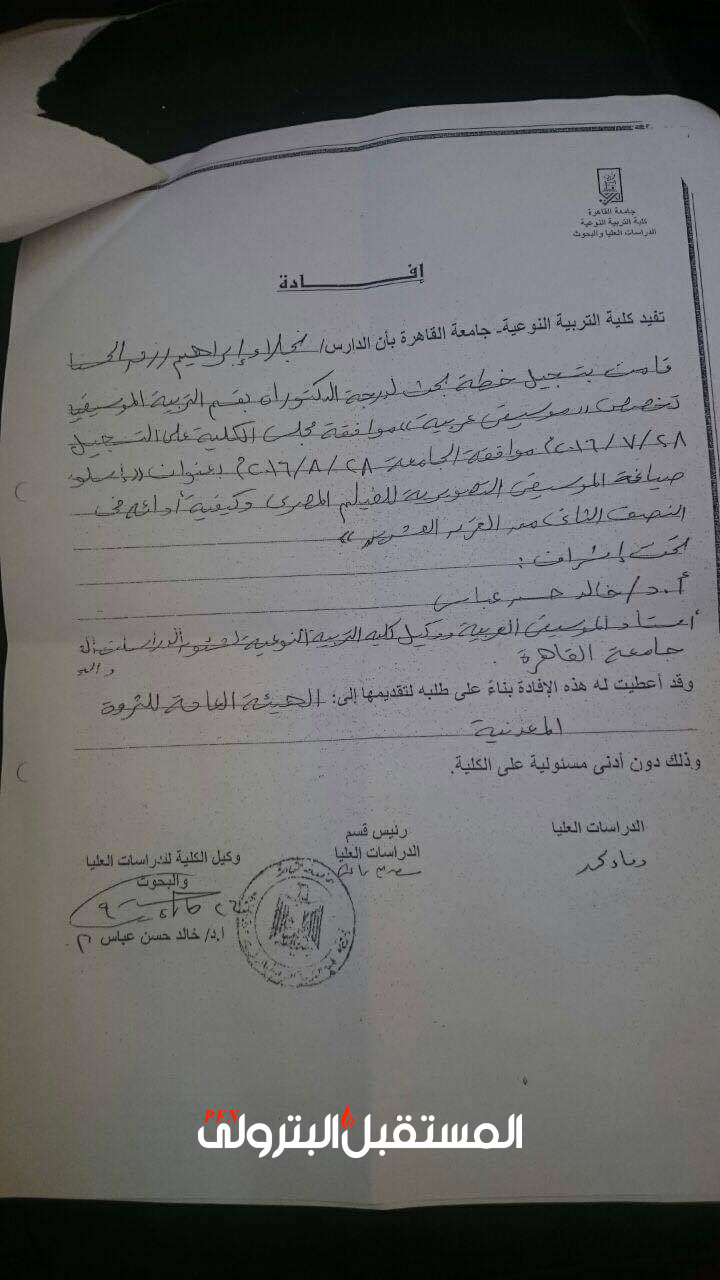 جامعة القاهرة
كلية التربية النوعية
الدراسات العليا والبحوث
إفـــــادة
تفيد كلية التربية النوعية - جامعة القاهرة بأن الدارس/ نجلاء إبراهيم رزق
قامت بتسجيل خطة بحث لدرجة الدكتوراه بقسم التربية الموسيقية
تخصص "موسيقى عربية" موافقة مجلس الكلية على التسجيل
٢٠١٦/٧/٢٨م موافقة الجامعة ٢٠١٦/٨/٢٨م بعنوان "اسلوب
صياغة الموسيقى التصويرية للفيلم المصرى وكيفية أدائه فى
النصف الثانى من القرن العشرين"
تحت إشراف:
أ.د/ خالد حسن عباس
أستاذ الموسيقى العربية ووكيل كلية التربية النوعية لشئون الدراسات
جامعة القاهرة.
وقد أعطيت له هذه الإفادة بناءً على طلبه لتقديمها إلى: الهيئة العامة للثروة
المعدنية
وذلك دون أدنى مسئولية على الكلية.
الدراسات العليا
رئيس قسم
الدراسات العليا
وكيل الكلية للدراسات العليا
والبحوث
ا.د/ خالد حسن عباس
PFN
المستقبل البترولى